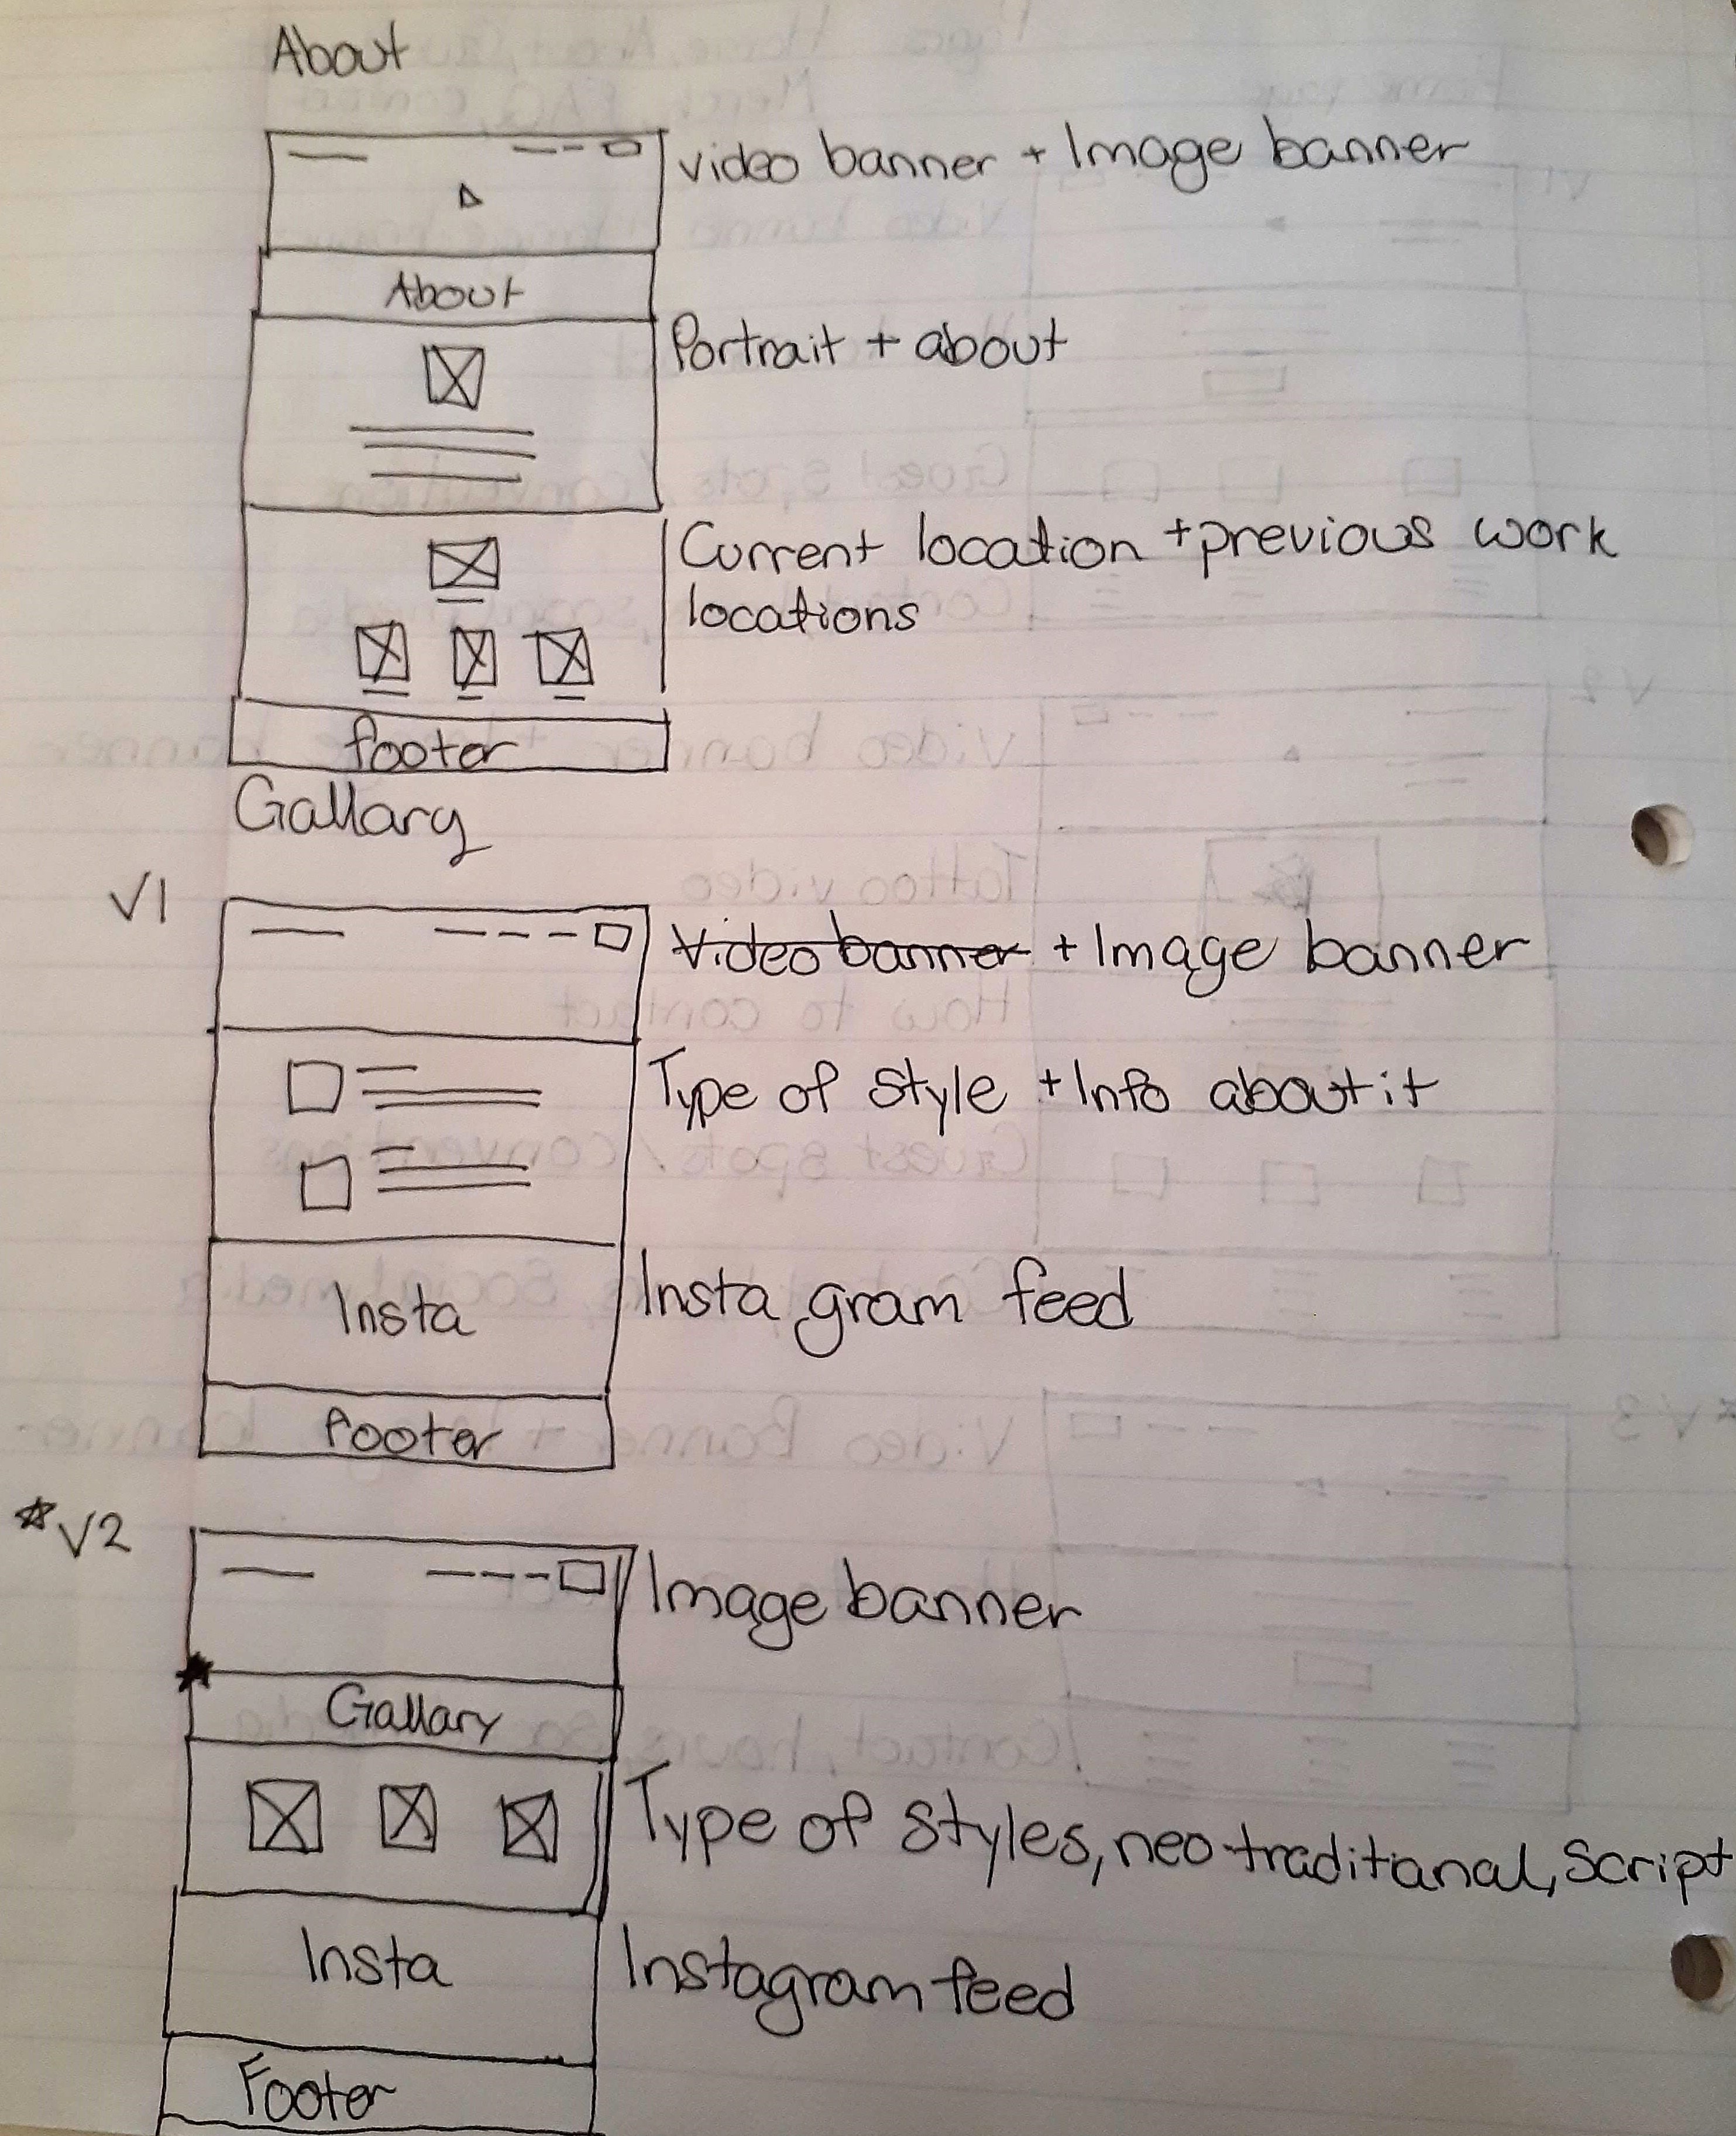 About
video banner + Image banner
About
Portrait + about
Current location + previous work
locations
footer
Gallary
V1
Video banner + Image banner
Type of style + Info about it
Insta
Insta gram feed
footer
*V2
Image banner
Gallary
Type of styles, neo-traditianal, Script
Insta
Instagram feed
Footer